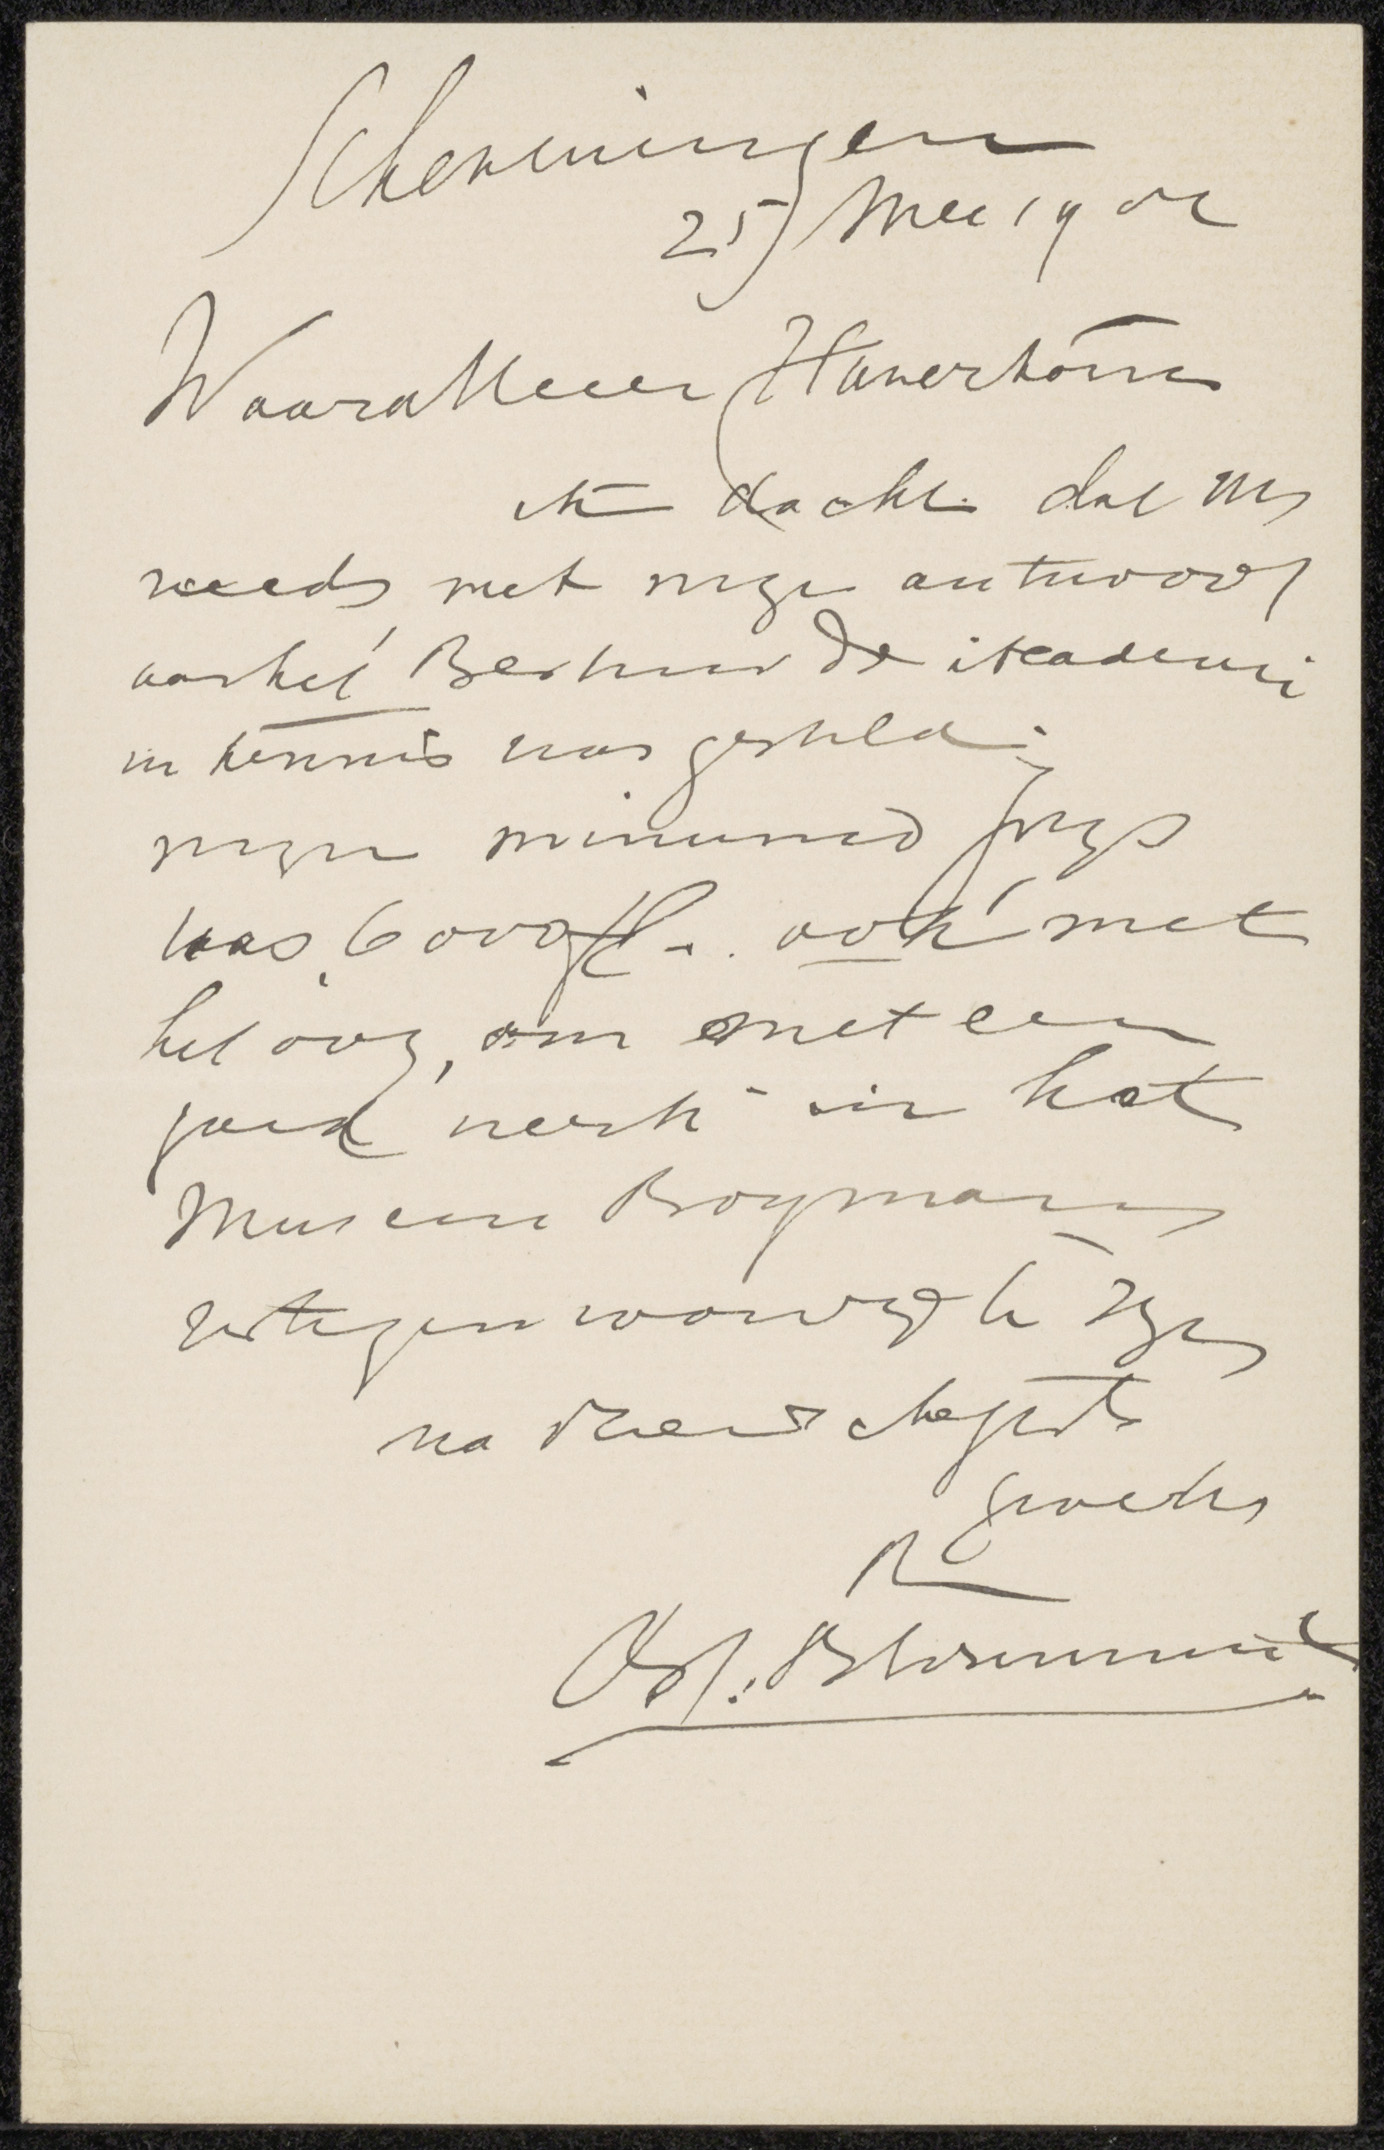 Scheveningen
25 Mei 19
Waarde Heer Haverkorn
ik dacht dat U
reeds met mijn antwoord
aan het Bestuur der Academie
in kennis was gesteld.
mijn minimum prijs
was 6000 fl. ook met
het oog, om met een
goed werk in het
Museum Boymans
vertegenwoordigd te zijn
na vriendschappelijke
groeten
Bl. Blommers